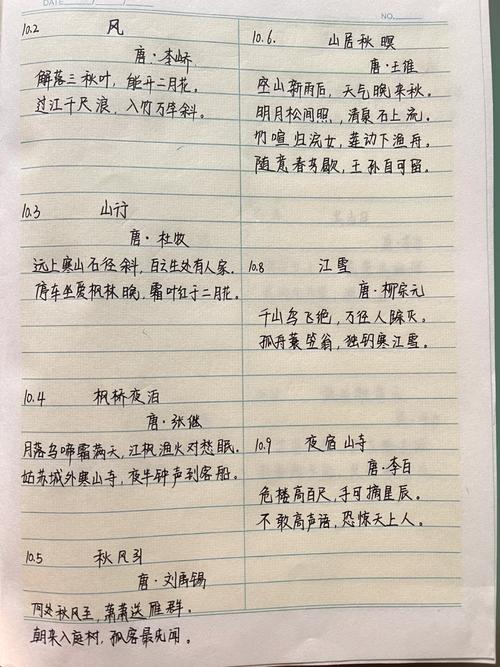 DATE
NO.
10.2 风
唐·李峤
解落三秋叶，能开二月花。
过江千尺浪，入竹万竿斜。
10.3 山行
唐·杜牧
远上寒山石径斜，白云生处有人家。
停车坐爱枫林晚，霜叶红于二月花。
10.4 枫桥夜泊
唐·张继
月落乌啼霜满天，江枫渔火对愁眠。
姑苏城外寒山寺，夜半钟声到客船。
10.5 秋风引
唐·刘禹锡
何处秋风至，萧萧送雁群。
朝来入庭树，孤客最先闻。
10.6. 山居秋暝
唐·王维
空山新雨后，天气晚来秋。
明月松间照，清泉石上流。
竹喧归浣女，莲动下渔舟。
随意春芳歇，王孙自可留。
10.8 江雪
唐·柳宗元
千山鸟飞绝，万径人踪灭。
孤舟蓑笠翁，独钓寒江雪。
10.9 夜宿山寺
唐·李白
危楼高百尺，手可摘星辰。
不敢高声语，恐惊天上人。